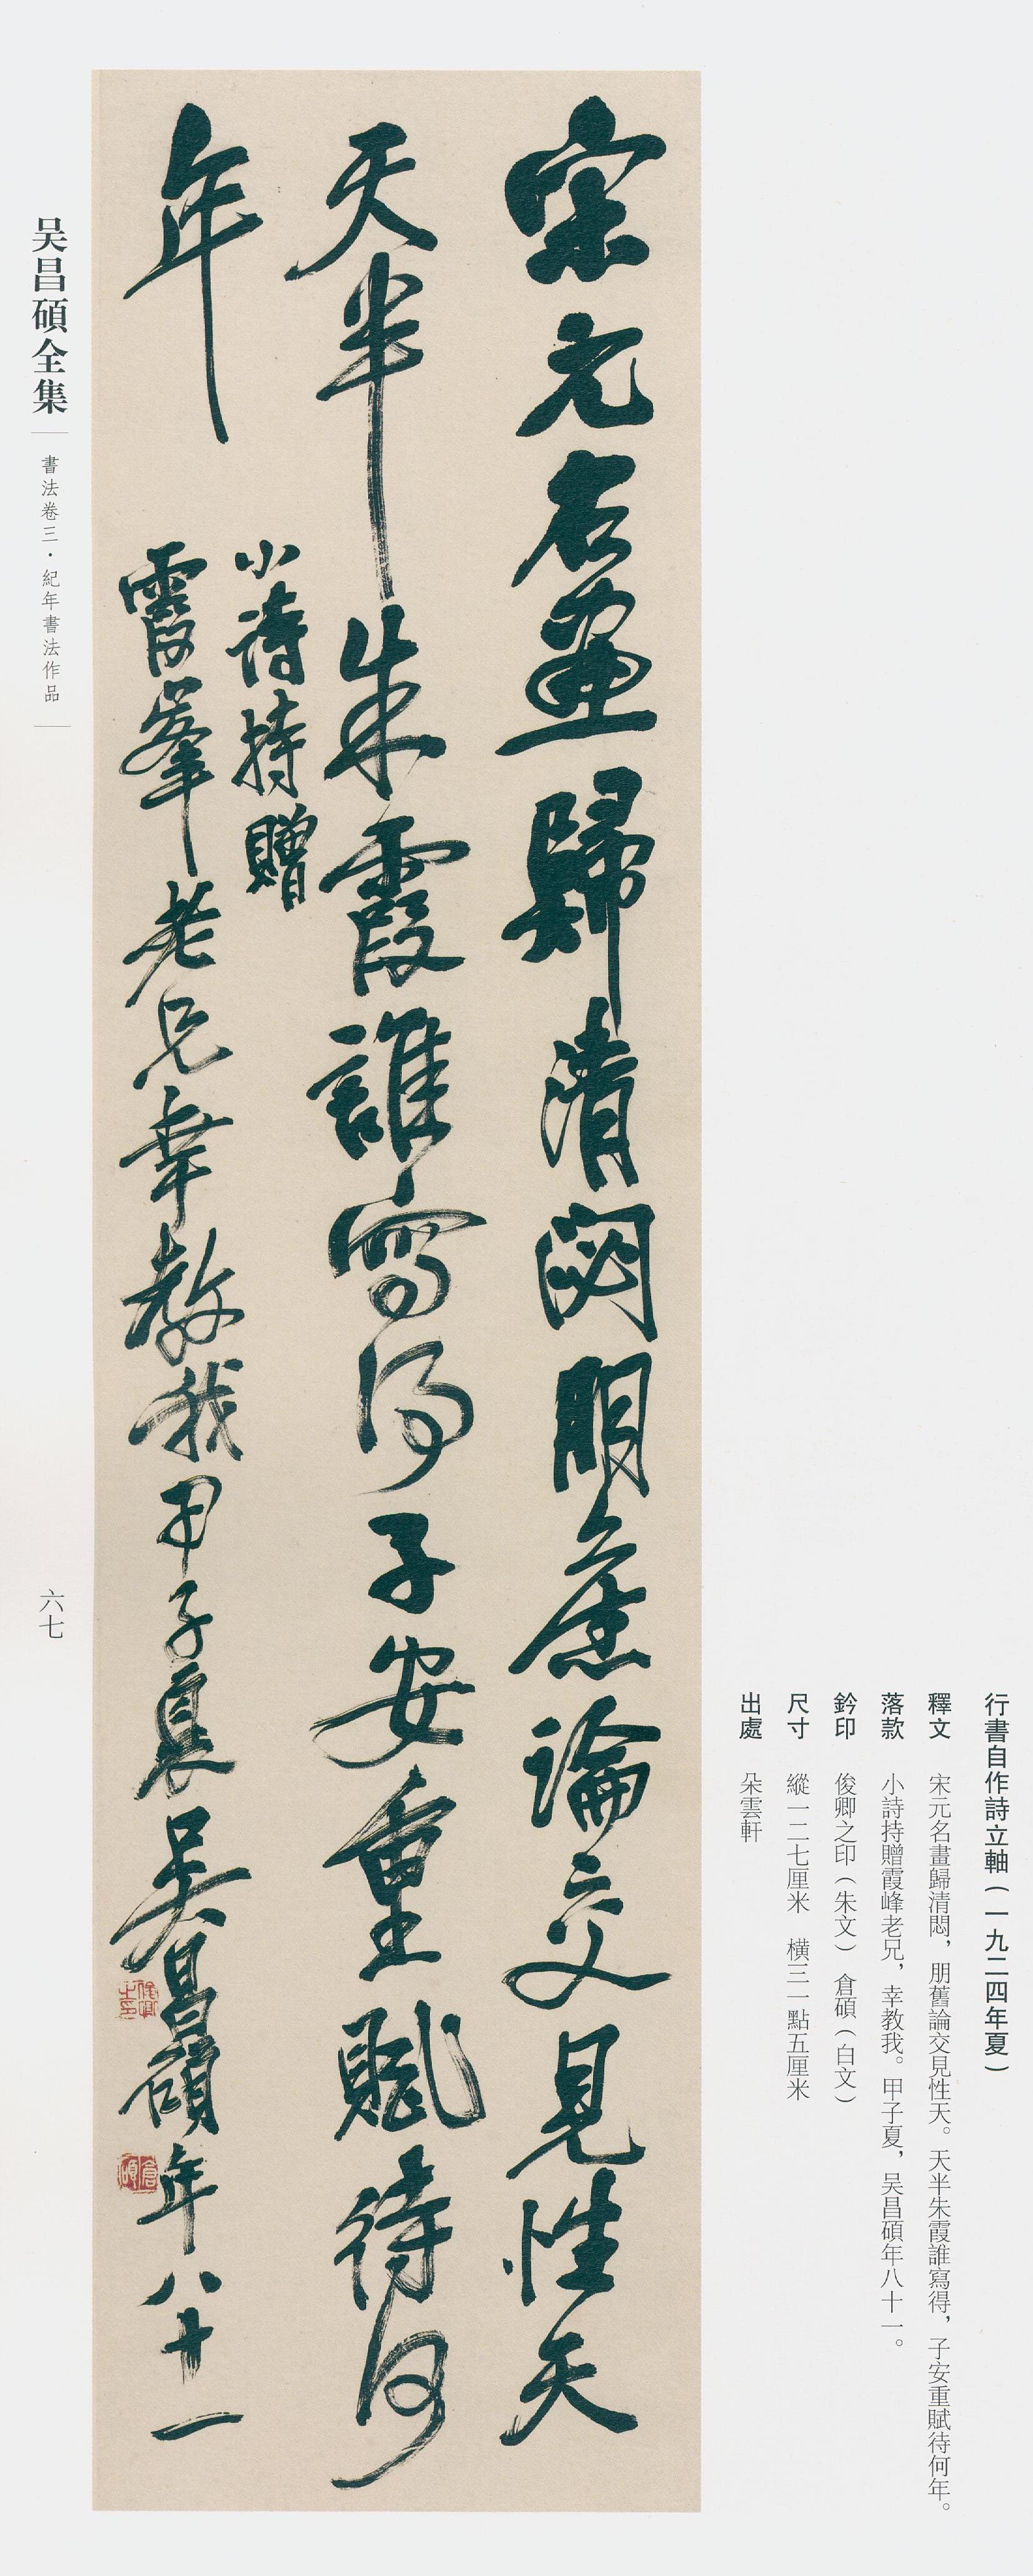 行書自作詩立軸（一九二四年夏）
釋文　宋元名畫歸清悶，朋舊論交見性天。天半朱霞誰寫得，子安重賦待何年。
落款　小詩持贈霞峰老兄，幸教我。甲子夏，吴昌碩年八十一。
鈐印　俊卿之印（朱文）　倉碩（白文）
尺寸　縱一二七厘米　橫三一點五厘米
出處　朵雲軒
宋元名畫歸清閟朋舊論交見性天
天半朱霞誰寫得子安重賦待何
年
小詩持贈
霞峯老兄幸教我甲子夏吳昌碩年八十一
俊卿之印
倉碩
吴昌碩全集
書法卷三・紀年書法作品
六七